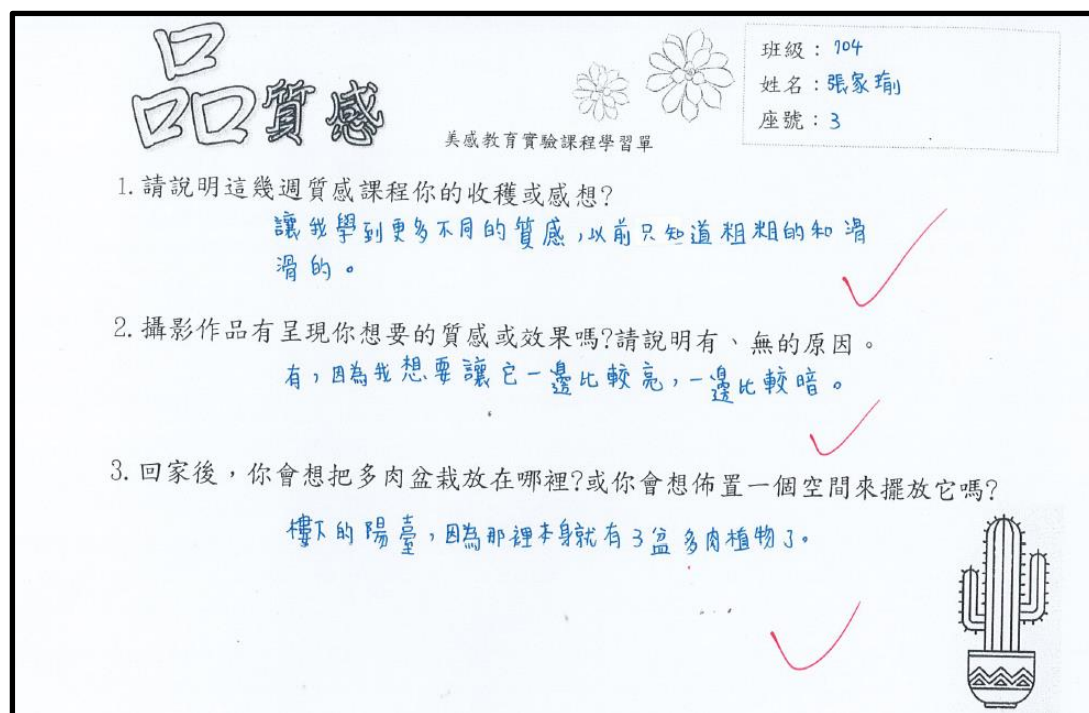 品質感
美感教育實驗課程學習單
班級：704
姓名：張家瑜
座號：3
1.請說明這幾週質感課程你的收穫或感想?
讓我學到更多不同的質感，以前只知道粗粗的和滑
滑的。
2.攝影作品有呈現你想要的質感或效果嗎?請說明有、無的原因。
有，因為我想要讓它一邊比較亮，一邊比較暗。
3.回家後，你會想把多肉盆栽放在哪裡?或你會想佈置一個空間來擺放它嗎?
樓下的陽臺，因為那裡本身就有3盆多肉植物了。